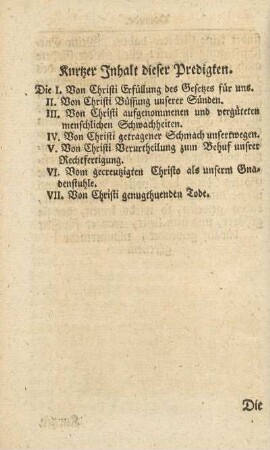 Kurtzer Inhalt dieser Predigten.
Die I. Von Christi Erfüllung des Gesetzes für uns.
II. Von Christi Büssung unserer Sünden.
III. Von Christi aufgenommenen und vergüteten
menschlichen Schwachheiten.
IV. Von Christi getragener Schmach unsertwegen.
V. Von Christi Verurtheilung zum Behuf unsrer
Rechtfertigung.
VI. Vom gecreutzigten Christo als unserm Gna-
denstuhle.
VII. Von Christi genugthuenden Tode.
Die